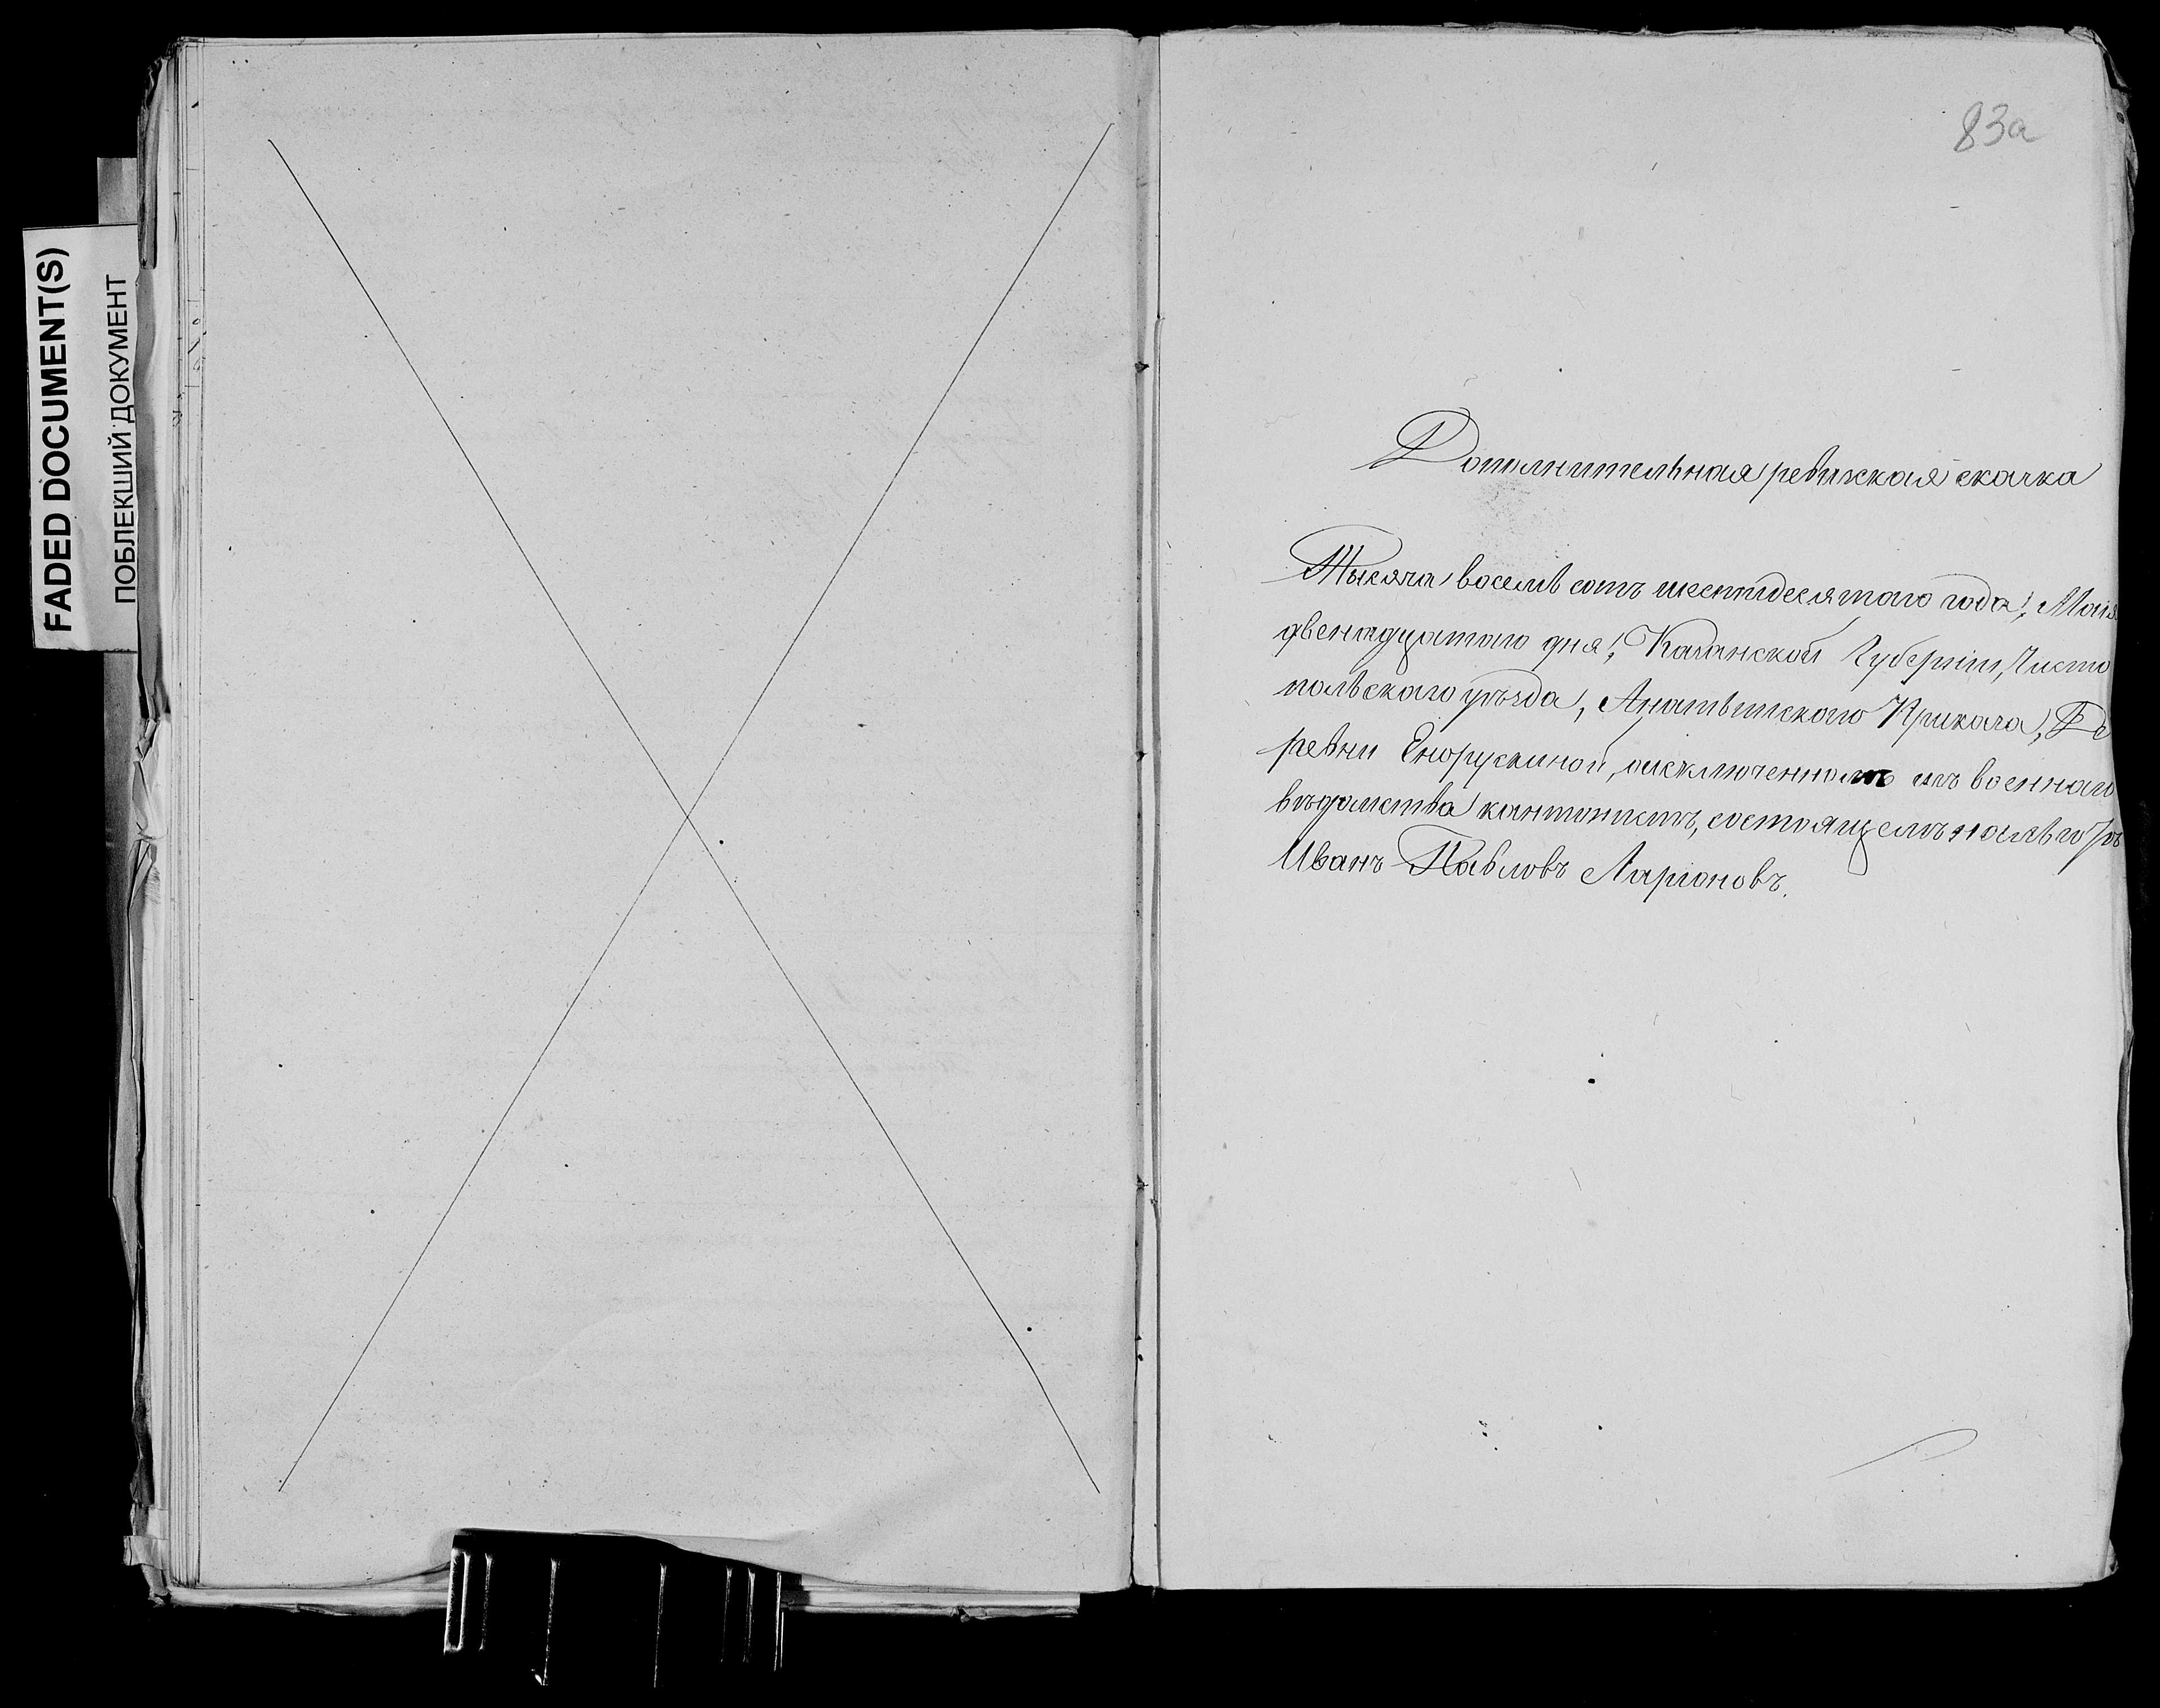 FADED DOCUMENT(S)
ПОБЛЕКШИЙ ДОКУМЕНТ
83а
Дополнительная ревизкая сказка
Тысяча восемь сотъ шестидесятаго года, Маія
двенадцатаго дня, Казанской Губерніи, Чисто
польскаго уѣзда, Анатышскаго Приказа, Де
ревни Енорускиной, исключенномъ изъ военнаго
вѣдомства кантонистѣ, состоящемъ
Иванъ Павловъ Ларіоновъ.